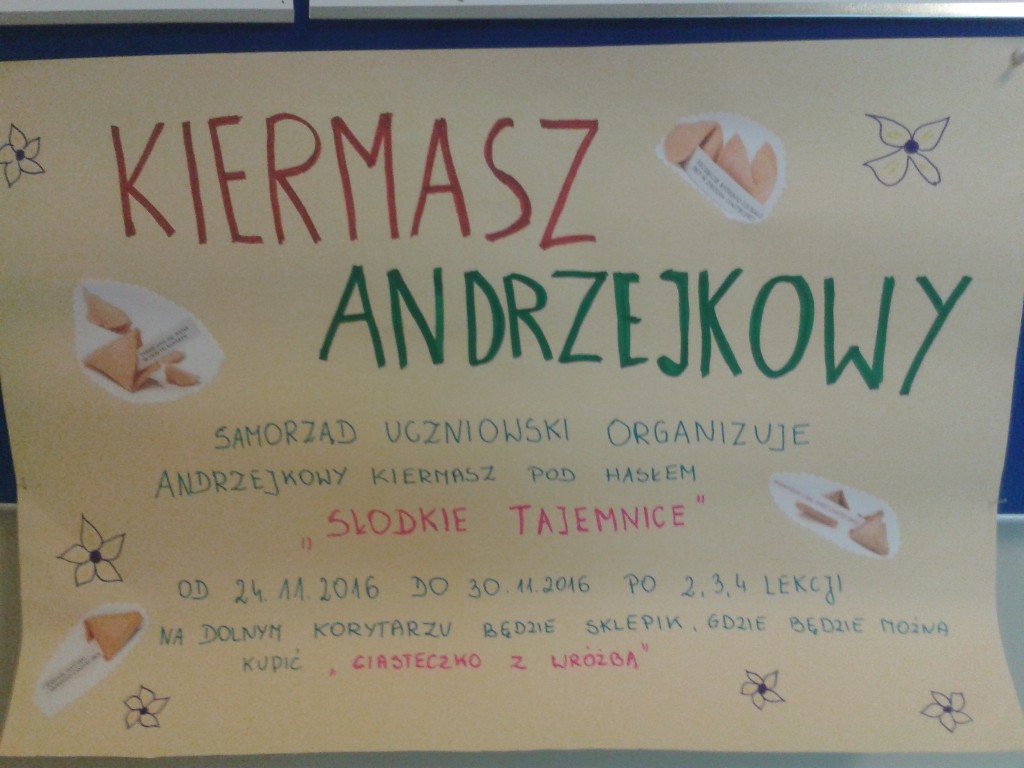 KIERMASZ
ANDRZEJKOWY
SAMORZĄD UCZNIOWSKI ORGANIZUJE
ANDRZEJKOWY KIERMASZ POD HASŁEM
„SŁODKIE TAJEMNICE"
OD 24.11.2016 DO 30.11.2016 PO 2,3,4 LEKCJI
NA DOLNYM KORYTARZU BĘDZIE SKLEPIK, GDZIE BĘDZIE MOŻNA
KUPIĆ „CIASTECZKO Z WRÓŻBĄ"